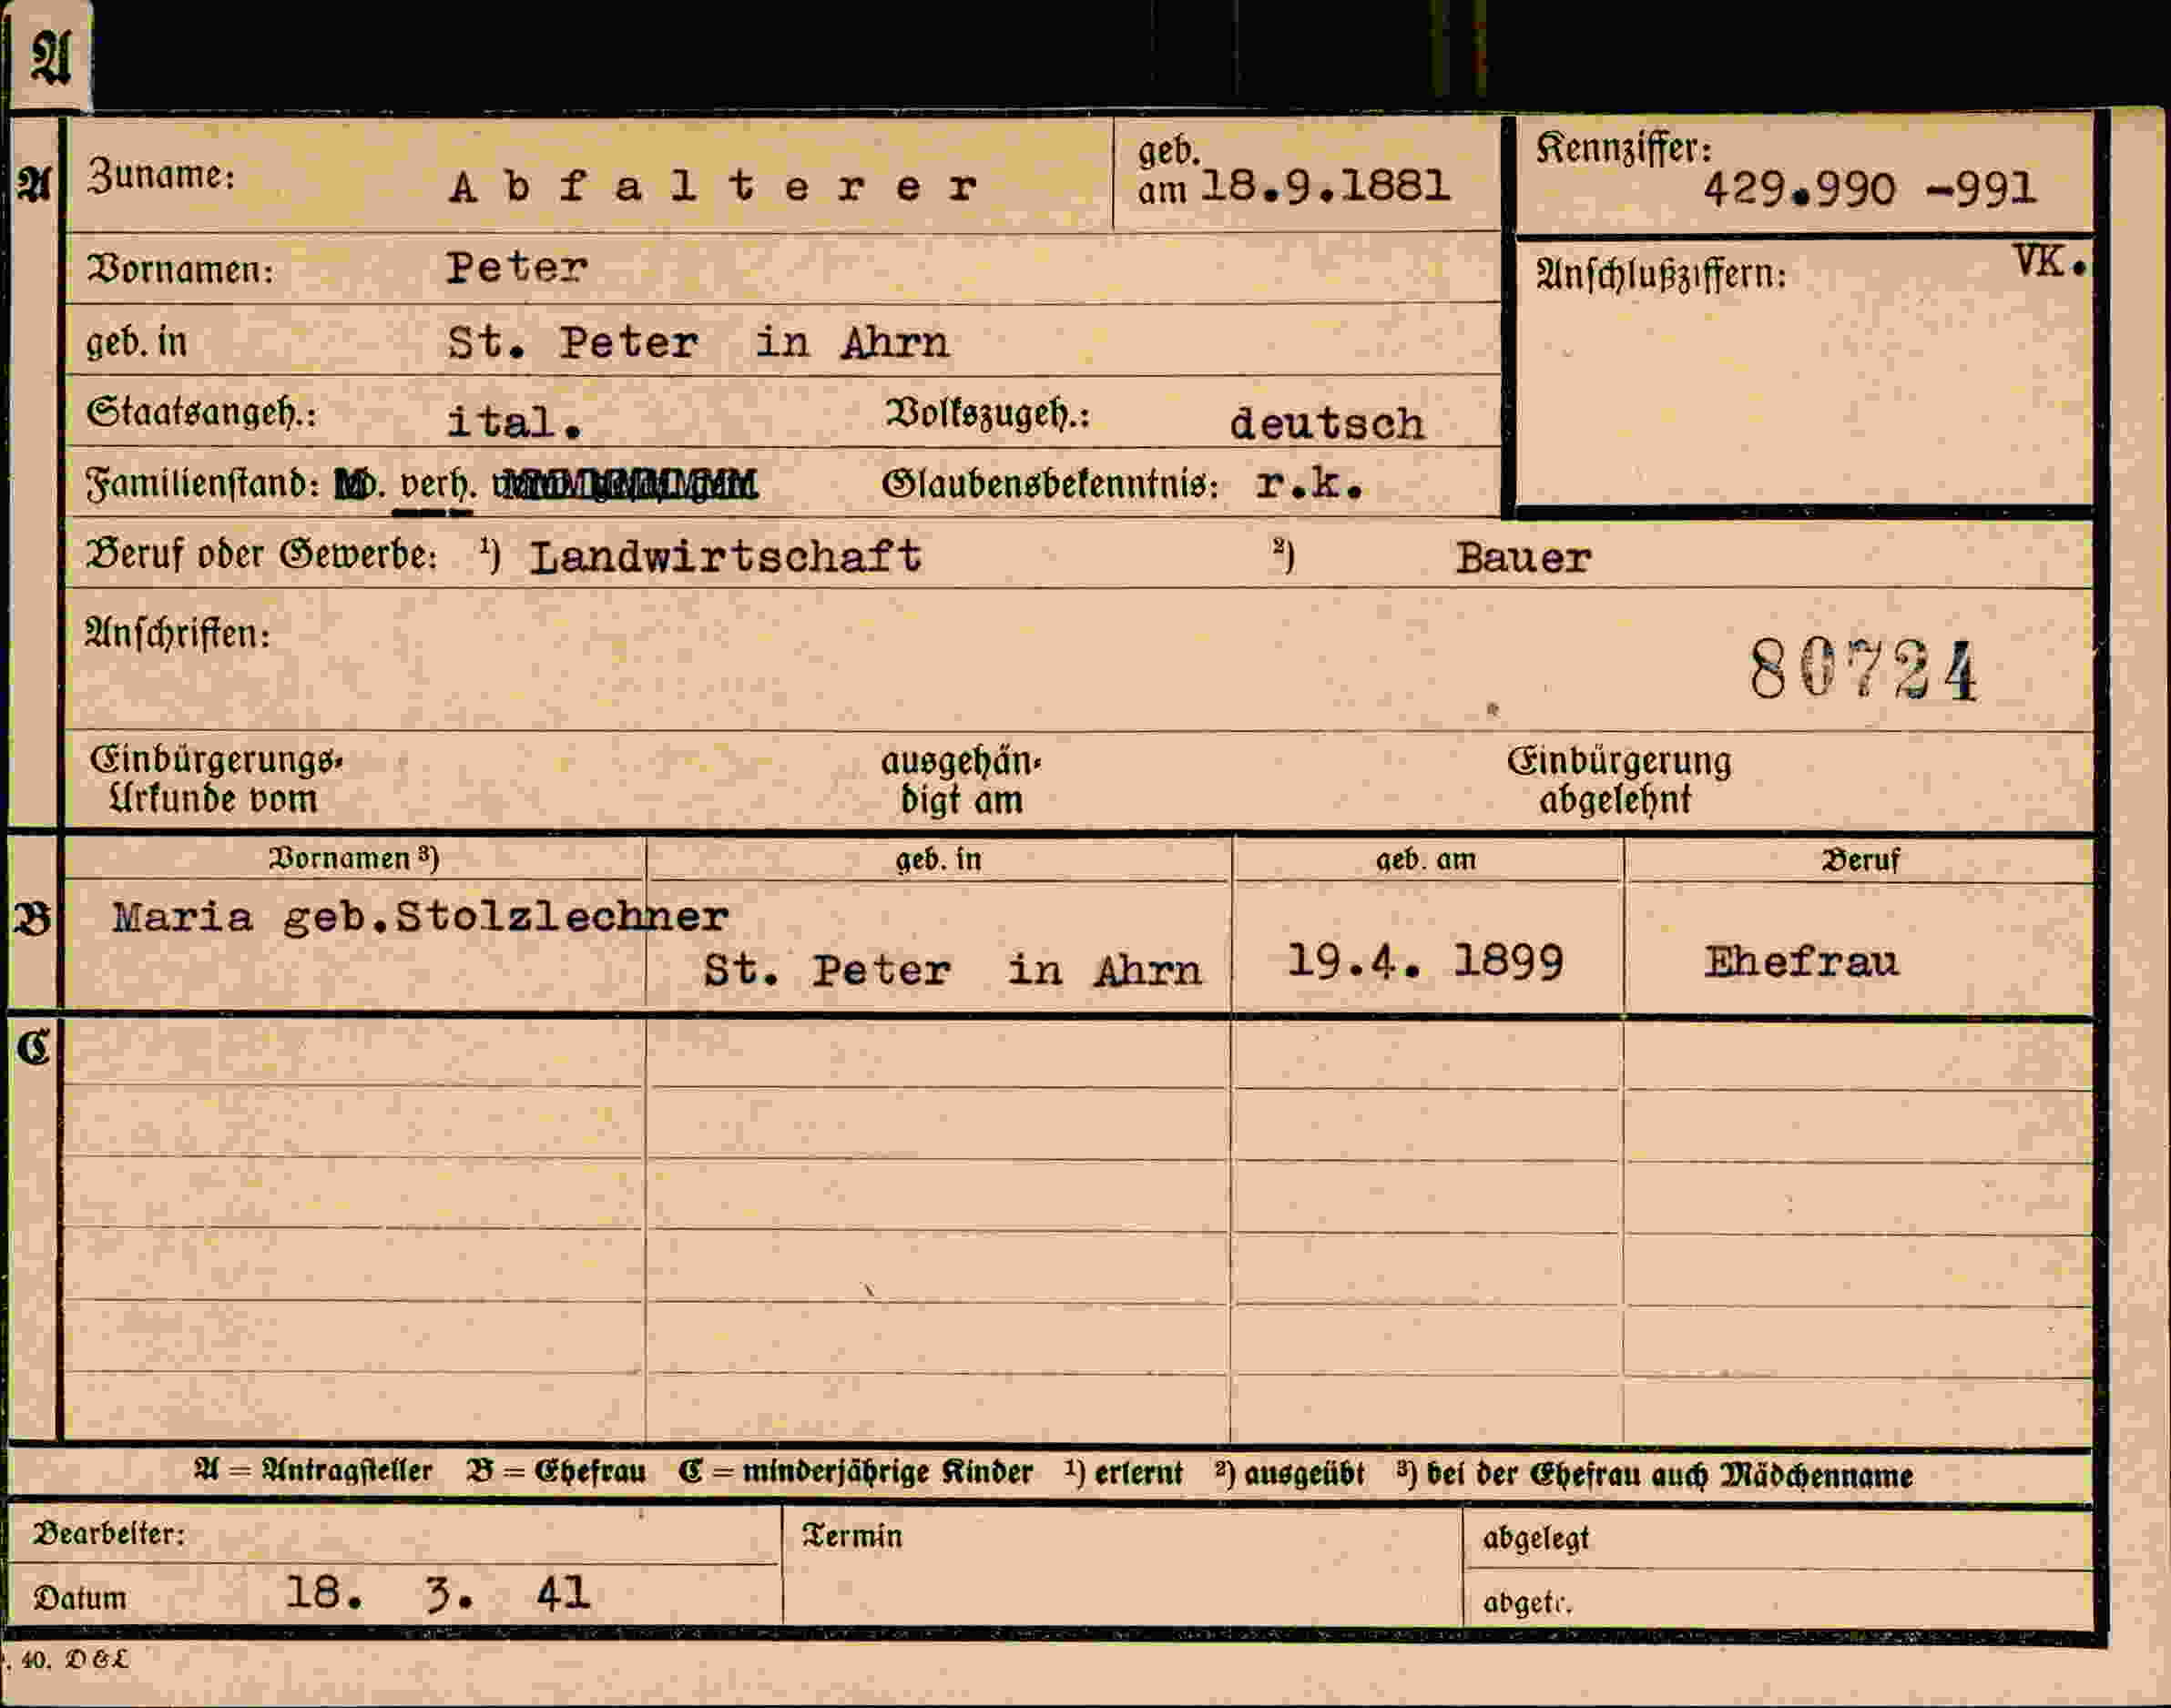 A
A Zuname: Abfalterer geb. am 18.9.1881 Kennziffer: 429.990 -991
Vornamen: Peter Anschlußziffern: VK.
geb. in St. Peter in Ahrn
Staatsangeh.: ital. Volkszugeh.: deutsch
Familienstand: verh. Glaubensbekenntnis: r.k.
Beruf oder Gewerbe: ¹) Landwirtschaft ²) Bauer
Anschriften: 80724
Einbürgerungs- ausgehän- Einbürgerung
Urkunde vom digt am abgelehnt
Vornamen ³) geb. in geb. am Beruf
B Maria geb.Stolzlechner
St. Peter in Ahrn 19.4. 1899 Ehefrau
C
A = Antragsteller B = Ehefrau C = minderjährige Kinder ¹) erlernt ²) ausgeübt ³) bei der Ehefrau auch Mädchenname
Bearbeiter: Termin abgelegt
Datum 18. 3. 41 abgetr.
. 40. D & L